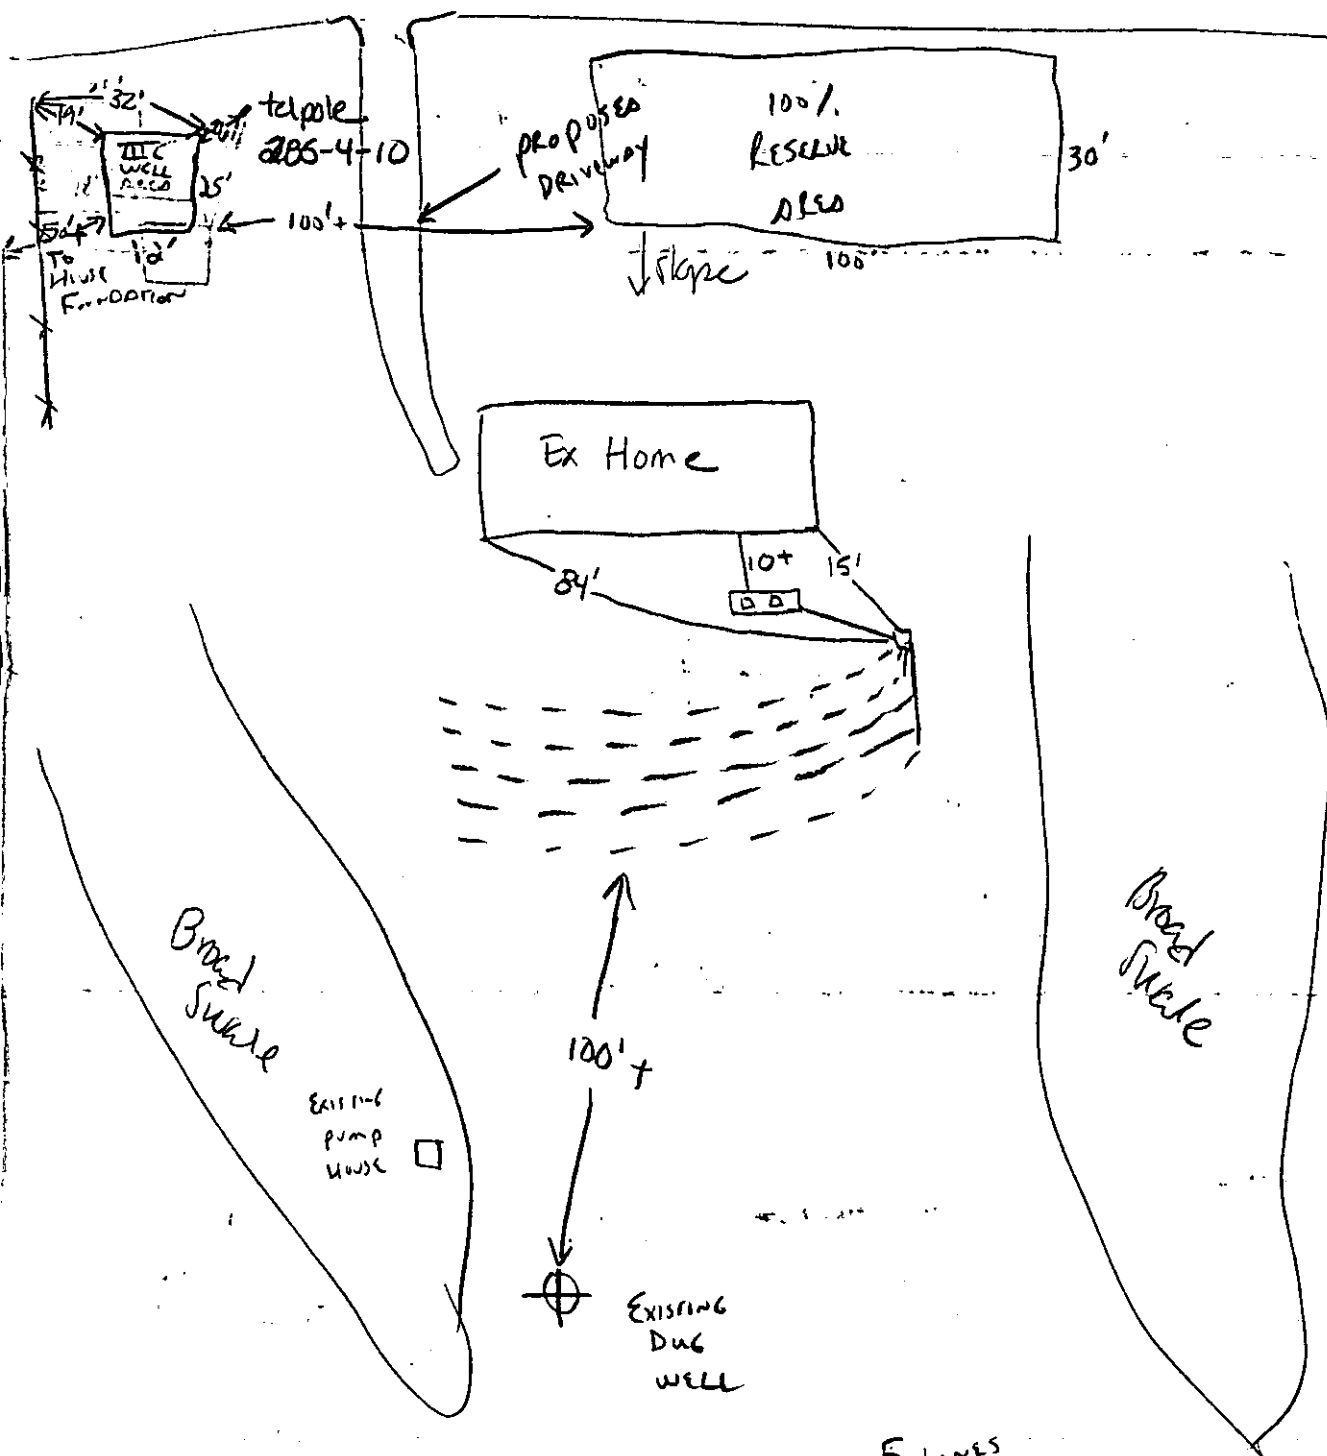 32'
19'
telpole
286-4-10
IIIC
WELL
AREA
25'
12'
50'+
TO
HOUSE
FOUNDATION
100'+
PROPOSED
DRIVEWAY
100%
RESERVE
AREA
30'
100'
slope
Ex Home
84'
10+
15'
Broad
Swale
Broad
Swale
100'+
EXISTING
PUMP
HOUSE
EXISTING
DUG
WELL
5 LINES